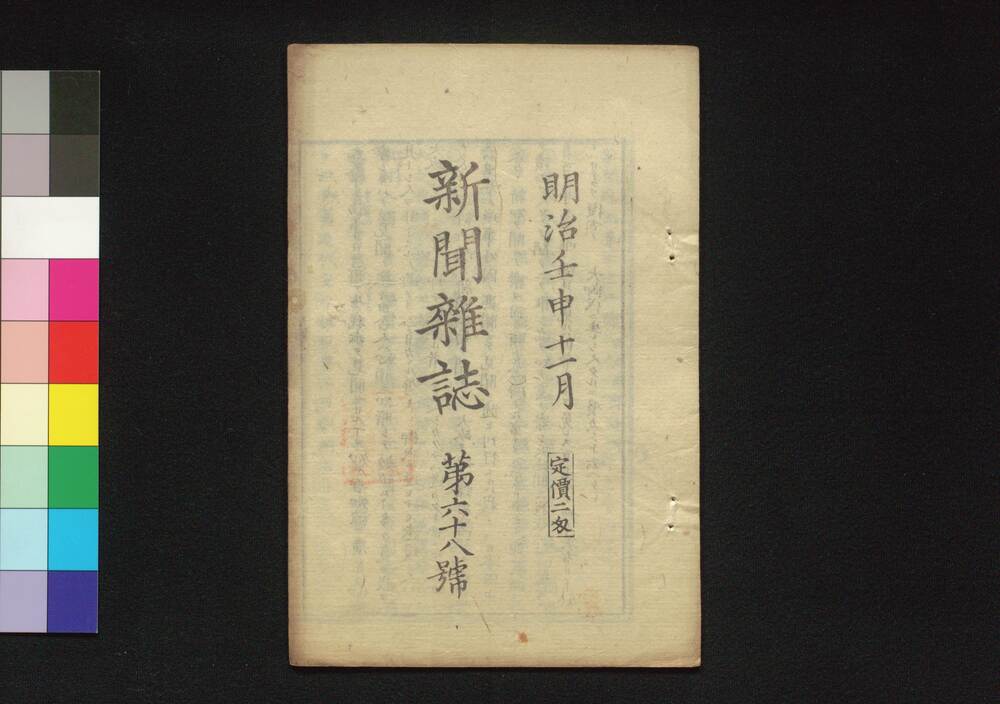 明治壬申十一月
定價二匁
新聞雜誌
第六十八號